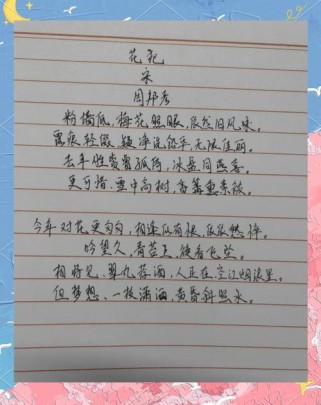 花犯
宋
周邦彦
粉墙低，梅花照眼，依然旧风味。
露痕轻缀，疑净洗铅华，无限佳丽。
去年胜赏曾孤倚，冰盘同燕喜。
更可惜，雪中高树，香篝熏素被。
今年对花更匆匆，相逢似有恨，依依愁悴。
吟望久，青苔上，旋看飞坠。
相将见，翠丸荐酒，人正在空江烟浪里。
但梦想，一枝潇洒，黄昏斜照水。